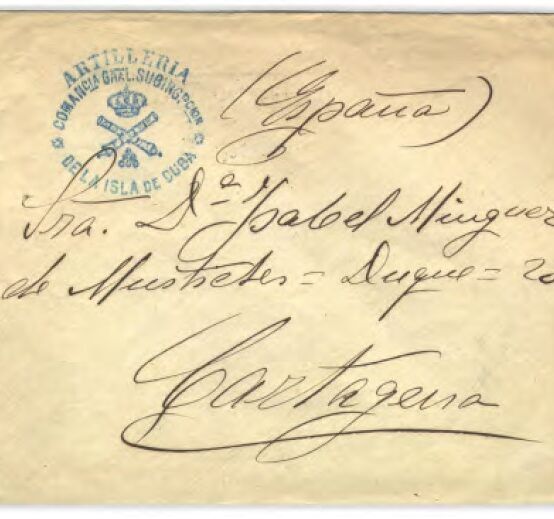 ARTILLERIA
COMANCIA GRAL. SUBINSPCCION
DE LA ISLA DE CUBA
(España)
Sra. Dª Ysabel Minguez
de = Duque = 20
Cartagena